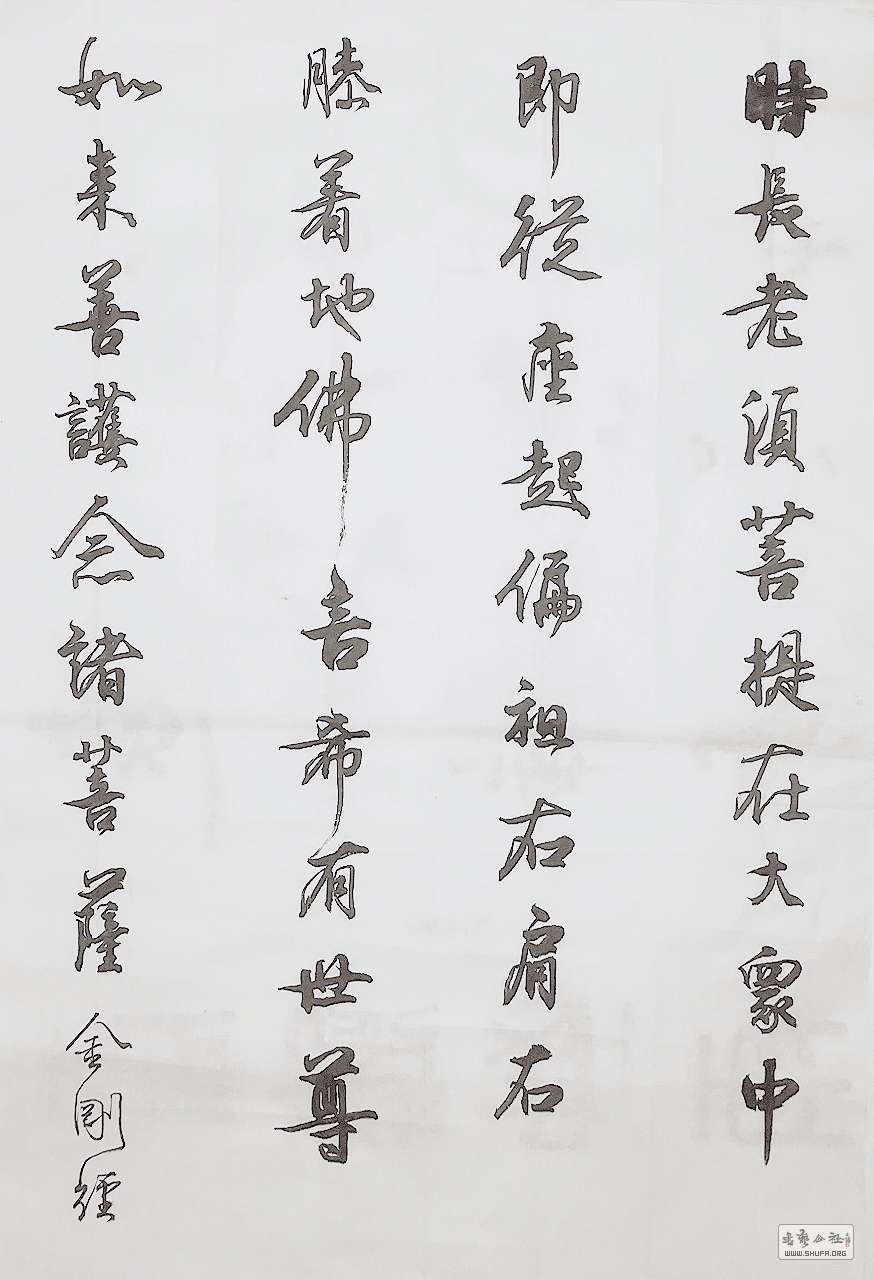 時長老須菩提在大眾中
即從座起偏祖右肩右
膝着地佛言希有世尊
如来善護念諸菩薩 金剛經
書藝公社
WWW.SHUFA.ORG